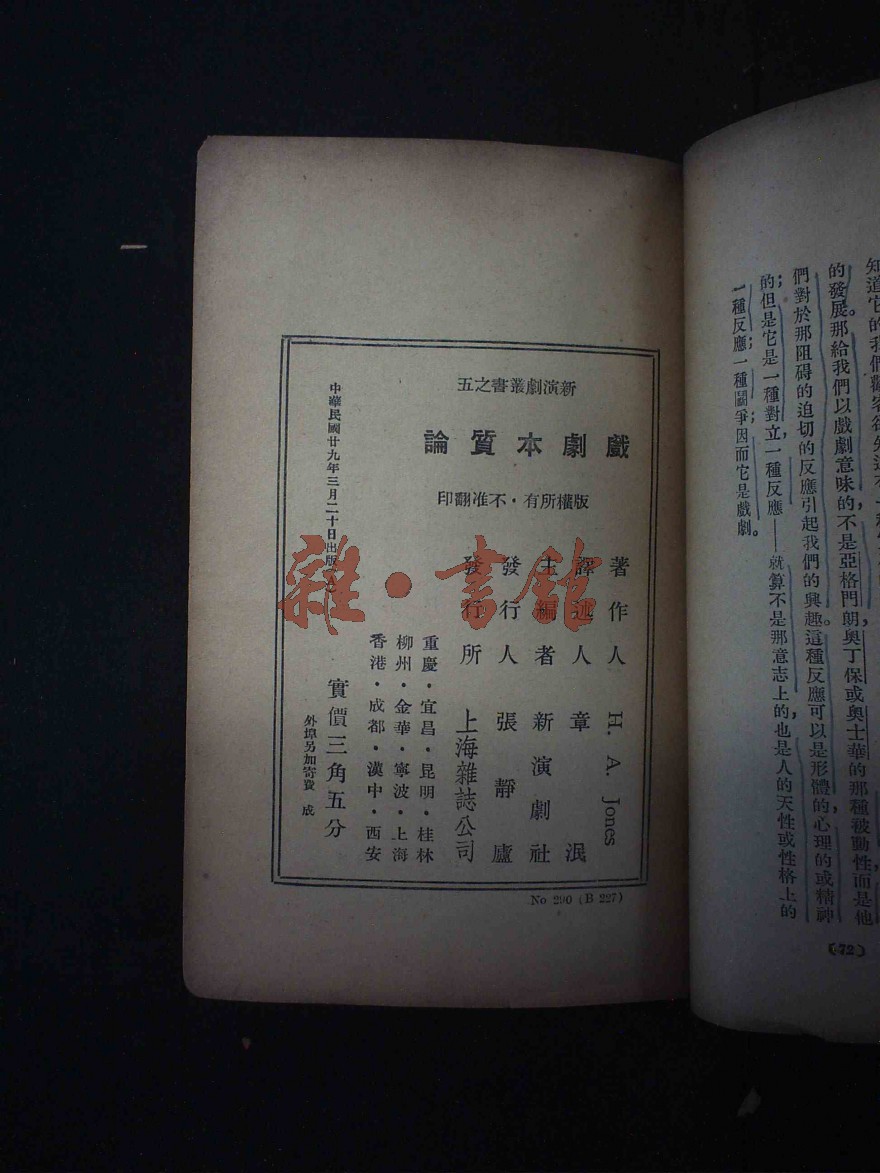 知道它的我們觀客欲知道
的發展。那給我們以戲劇意味的，不是亞格門朗奧丁保或奧士華的那種被動性而是他
們對於那阻碍的迫切的反應引起我們的興趣。這種反應可以是形體的，心理的或精神
的；但是它是一種對立，一種反應——就算不是那意志上的，也是人的天性或性格上的
一種反應；一種鬭爭；因而它是戲劇。
〔72〕
新演劇叢書之五
戲劇本質論
版權所有・不准翻印
著作人 H. A. Jones
譯述人 章泯
主編者 新演劇社
發行人 張靜廬
發行所 上海雜誌公司
重慶・宜昌・昆明・桂林
柳州・金華・寧波・上海
香港・成都・漢中・西安
實價三角五分
外埠另加寄費 成
中華民國廿九年三月二十日出版
No 290 (B 227)
雜・書館